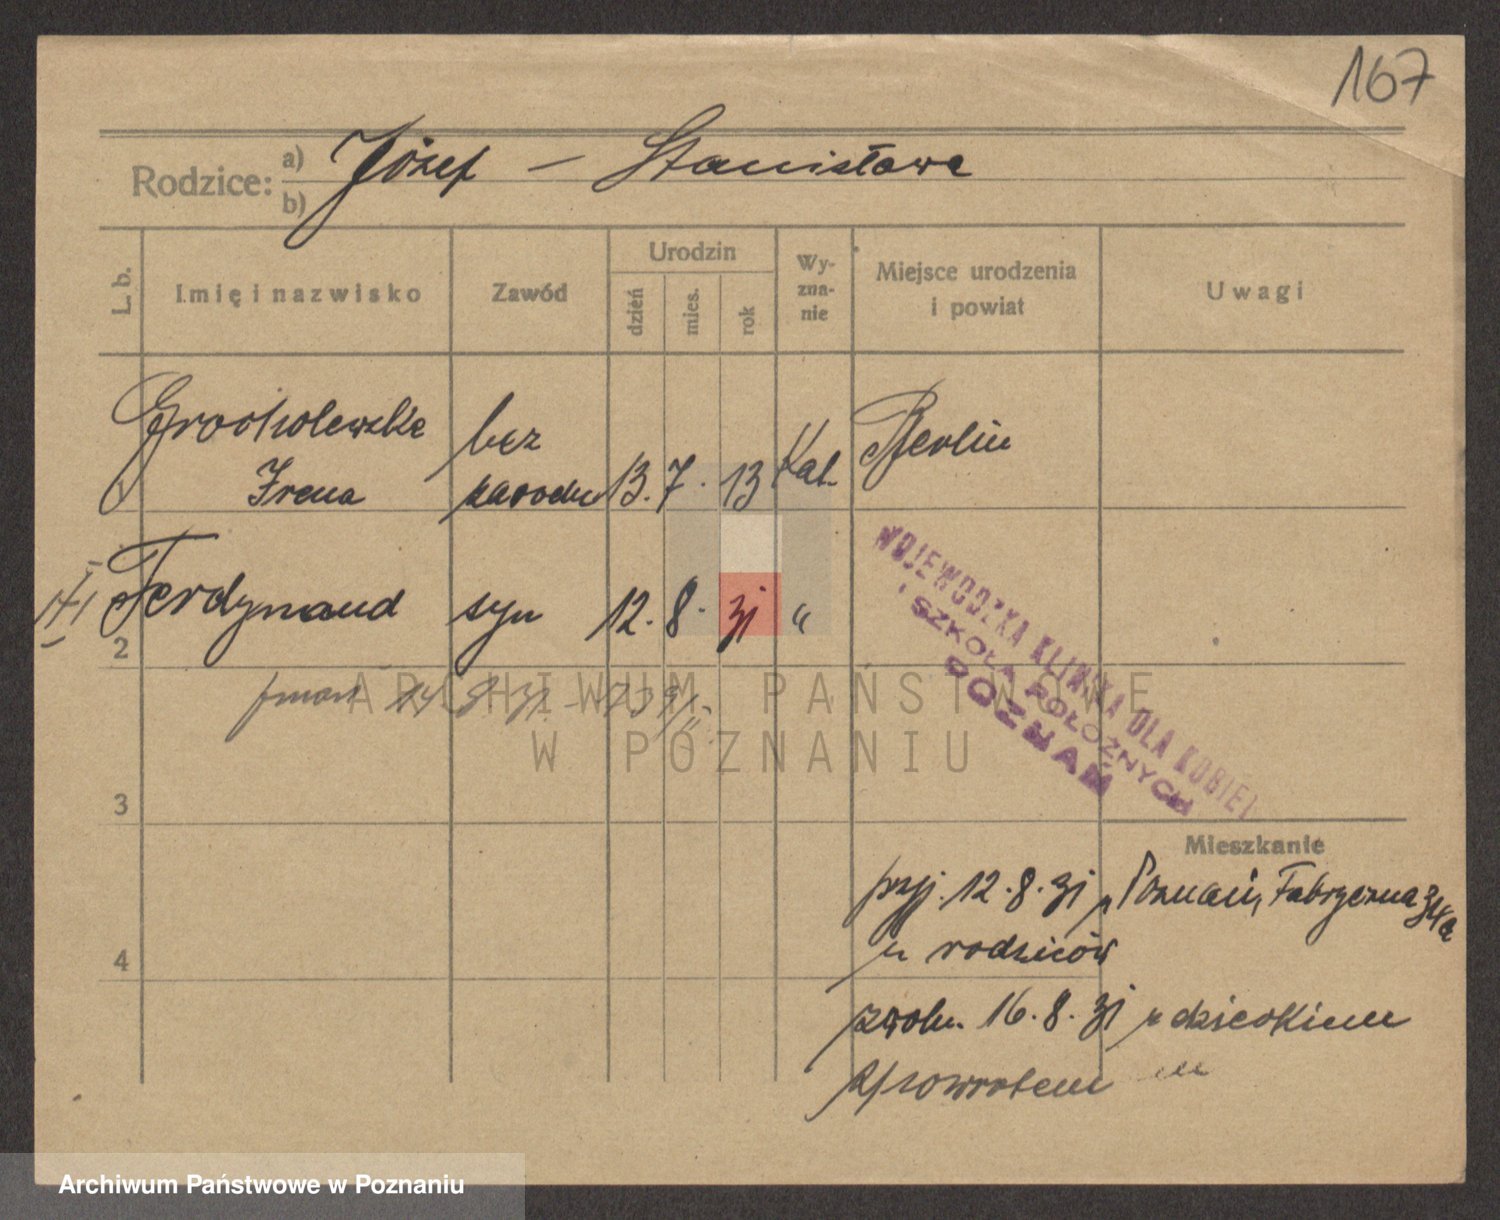 167
Rodzice: a) Józef – Stanisława
b)
L. b.
Imię i nazwisko
Zawód
Urodzin
dzień
mies.
rok
Wy-
zna-
nie
Miejsce urodzenia
i powiat
Uwagi
Grocholewska bez
Irena zawodu 13. 7. 13 Kat. Berlin
2 Ferdynand syn 12. 8. 31 "
WOJEWÓDZKA KLINIKA DLA KOBIET
I SZKOŁA POŁOŻNYCH
POZNAŃ
ARCHIWUM PAŃSTWOWE
W POZNANIU
3
Mieszkanie
przyj. 12.8.31 Poznań, Fabryczna
rodziców
4
zwoln. 16.8.31 z dzieckiem
zpowrotem
Archiwum Państwowe w Poznaniu